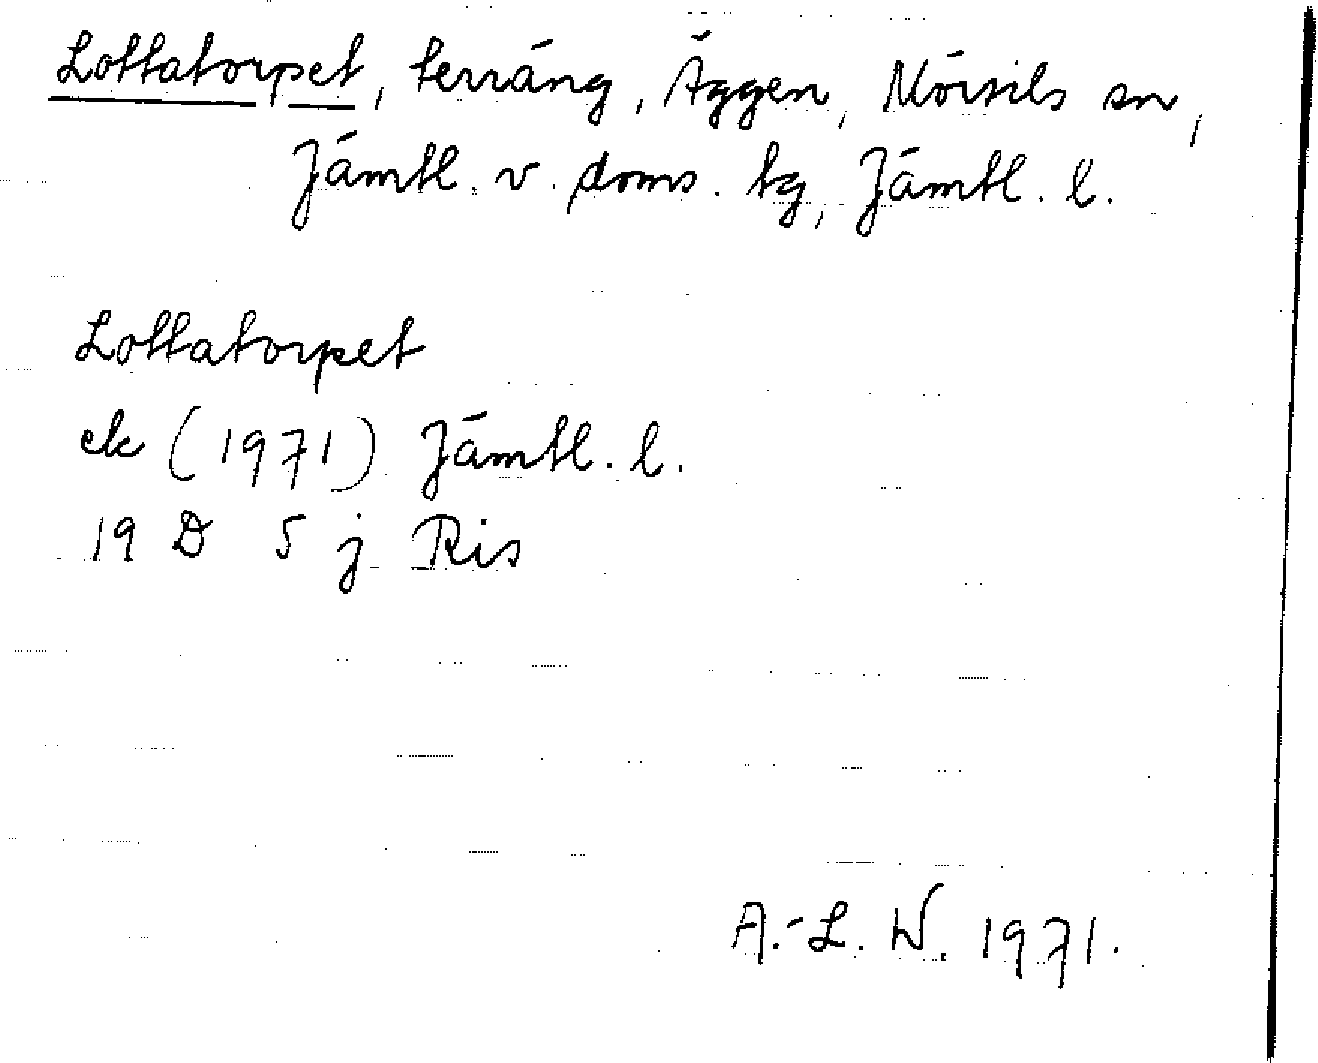 Lottatorpet, terräng, Äggen, Mörsils sn,
Jämtl. v. doms. tg, Jämtl. l.
Lottatorpet
ek (1971) Jämtl. l.
19 D 5 j Ris
A.-L. W. 1971.